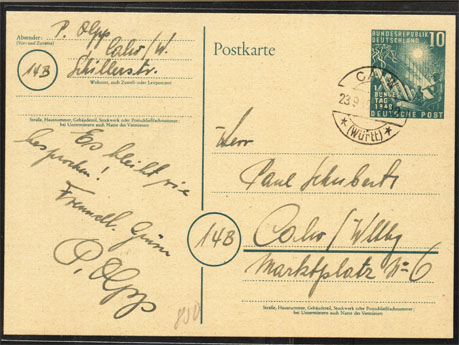 Absender: P. Olpp
(Vor- und Zuname)
Calw/W.
14B Schillerstr.
Wohnort, auch Zustell- oder Leitpostamt
Straße, Hausnummer, Gebäudeteil, Stockwerk oder Postschließfachnummer;
bei Untermietern auch Name des Vermieters
Es bleibt wie
besprochen!
Freundl. Grüße
P. Olpp
Postkarte
BUNDESREPUBLIK 10
DEUTSCHLAND
BUNDES
TAG
1949
DEUTSCHE POST
CALW
23.9.
(WÜRTT)
Herr
Paul Schubert
14B Calw/Wttbg
Marktplatz No 6
Straße, Hausnummer, Gebäudeteil, Stockwerk oder Postschließfachnummer;
bei Untermietern auch Name des Vermieters